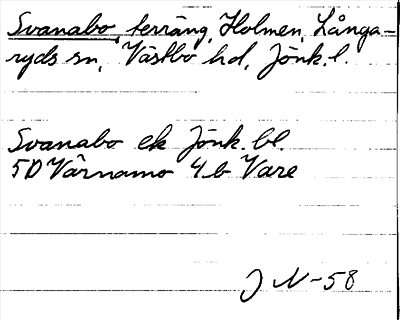 Svanabo, terräng, Holmen, Långa-
ryds sn, Västbo hd, Jönk. l.
Svanabo ek Jönk. bl.
5D Värnamo 4b Vare
J N-58